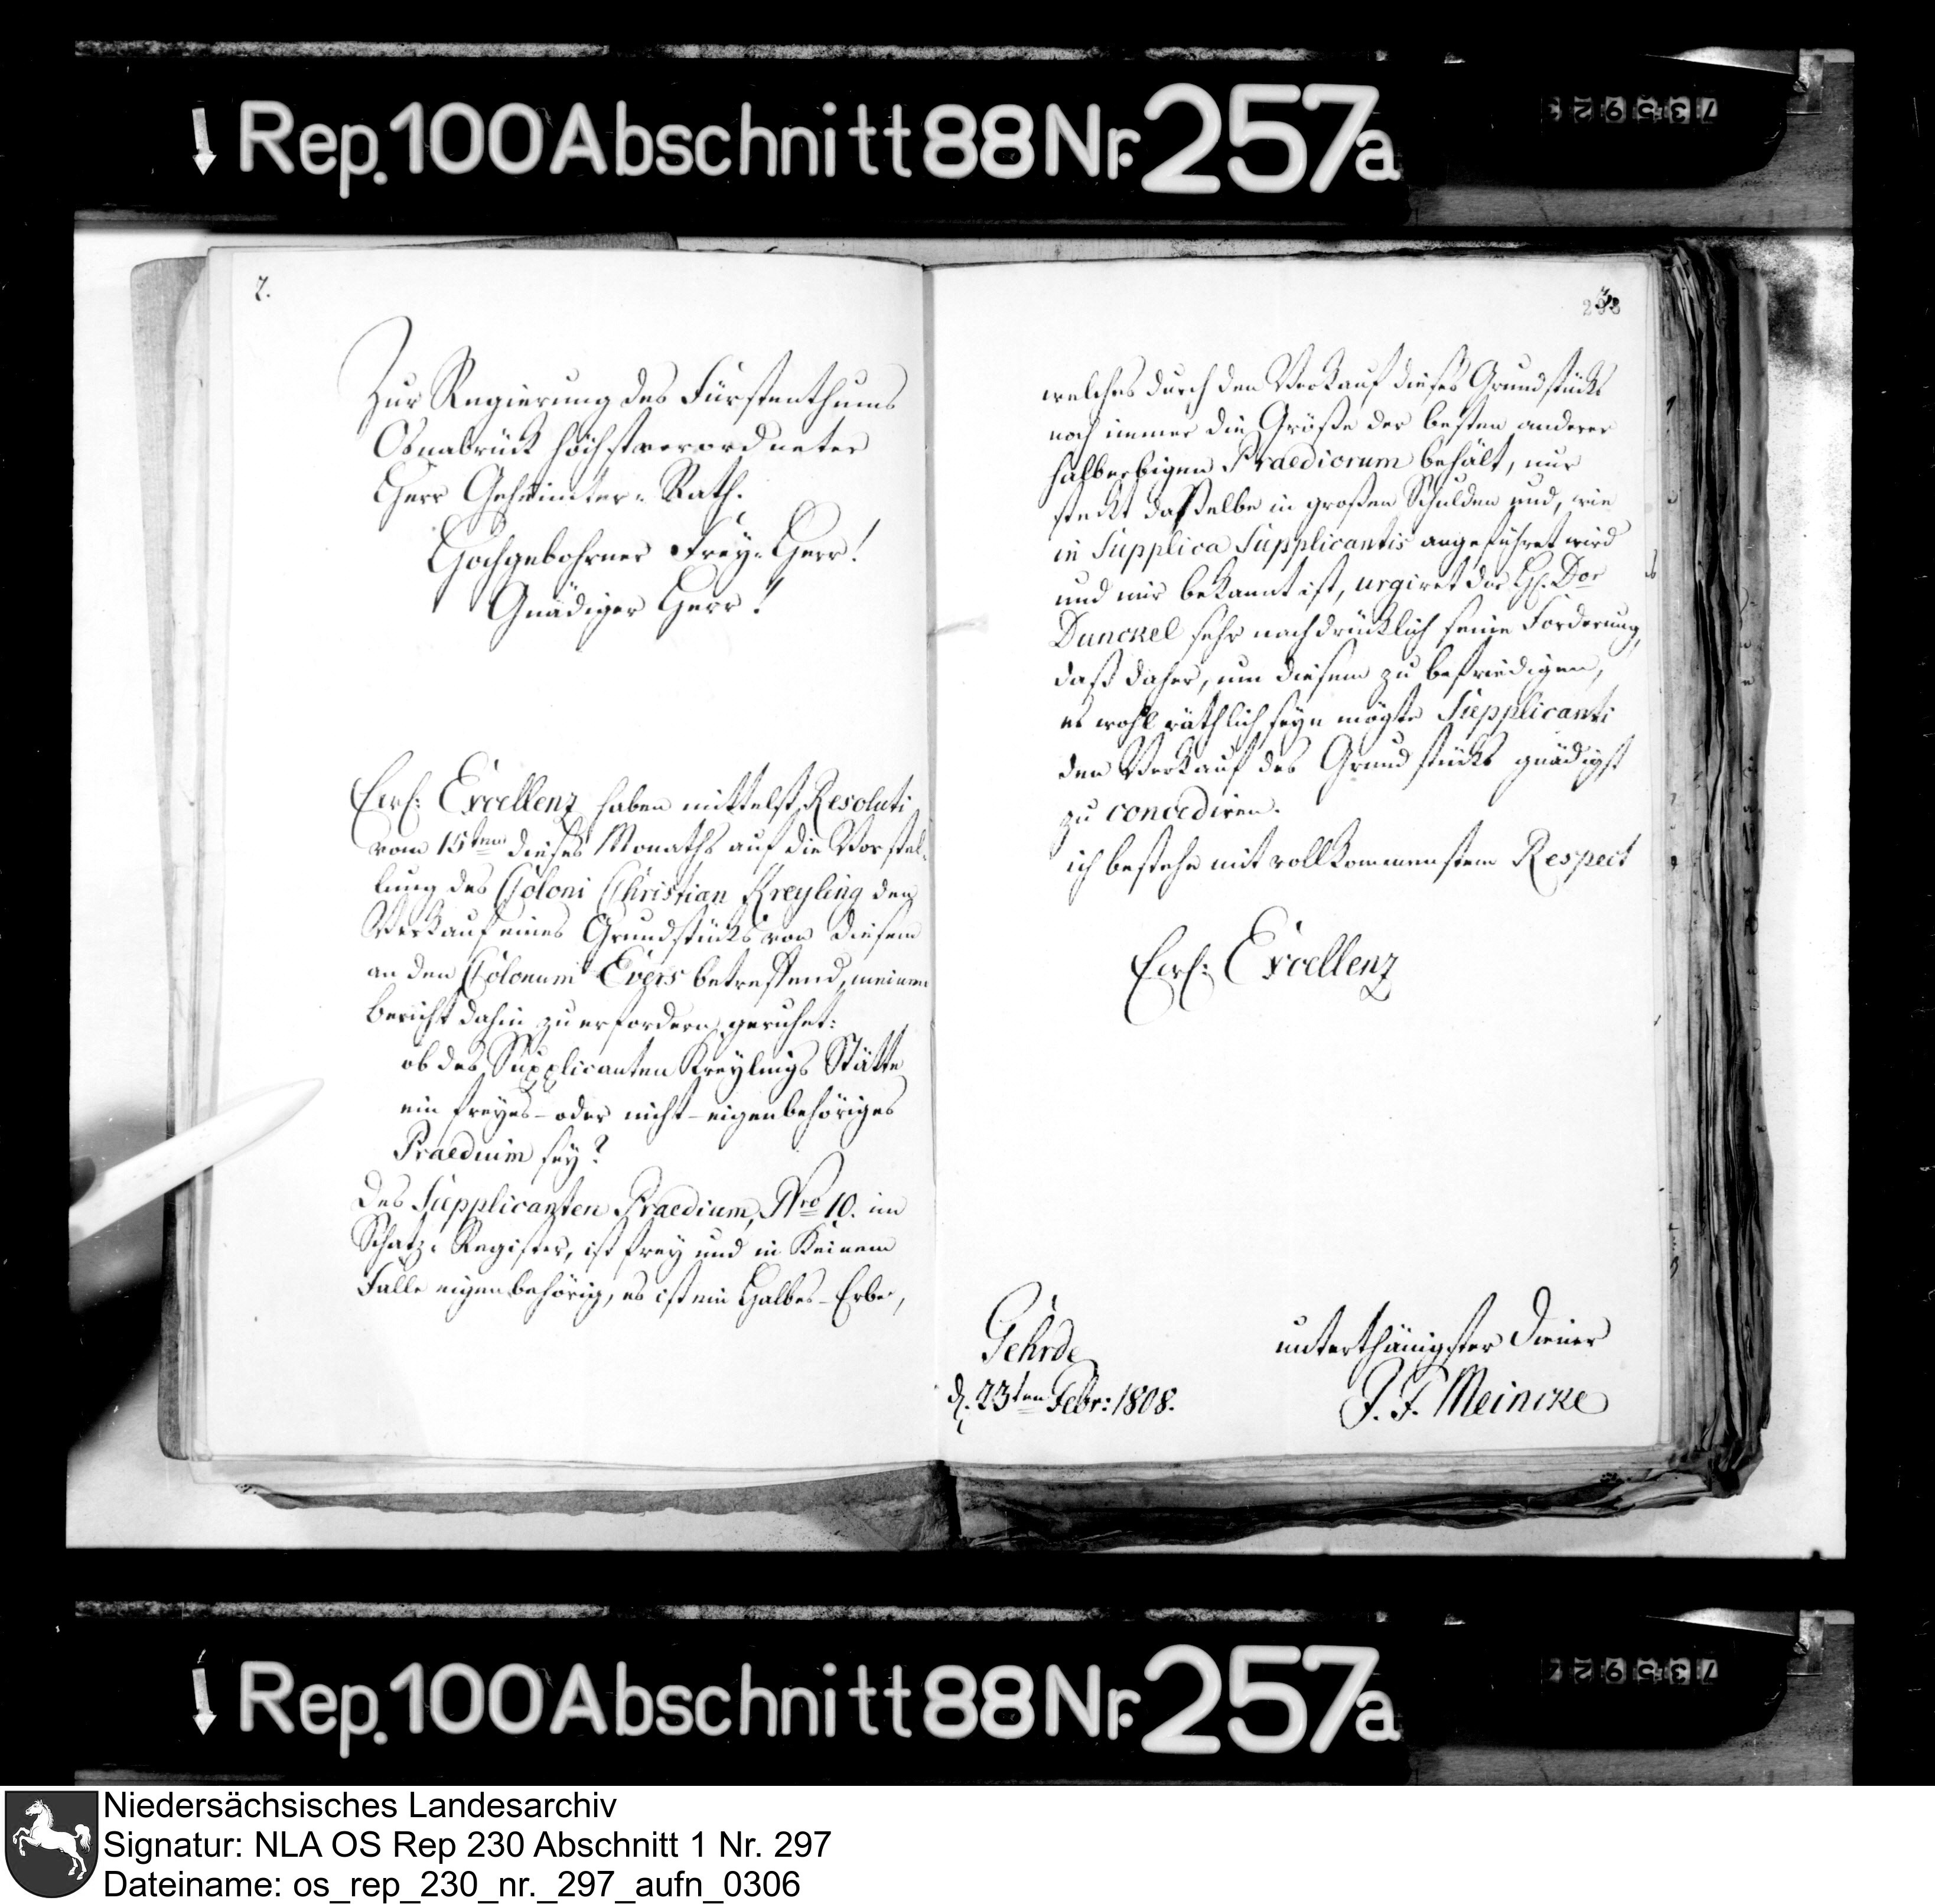 Rep. 100 Abschnitt 88 Nr. 257a
2.
Zur Regierung des Fürstenthums
Osnabrück höchstverordneter
Herr Geheimter-Rath.
Hochgebohrner Frey-Herr!
Gnädiger Herr!
Ew: Excellenz haben mittelst Resoluti
vom 15ten dieses Monaths auf die Vorstel-
lung des Coloni Christian Kreyling den
Verkauf eines Grundstücks von diesem
an den Colonum Evers betreffend, meinen
Bericht dahin zu erfordern geruhet:
ob des Supplicanten Kreylings Stätte
ein freyes- oder nicht-eigenbehöriges
Praedium sey?
Des Supplicanten Praedium, Nro 10. im
Schatz-Register, ist frey und in keinem
Falle eigenbehörig, es ist ein Halbes-Erbe,
welches durch den Verkauf dieses Grundstücks
noch immer die Größe der besten anderer
halberbigen Praediorum behält, nur
steckt dasselbe in großen Schulden und, wie
in Supplica Supplicantis angeführet wird
und mir bekannt ist, urgiret der H. Dor
Dunckel sehr nachdrücklich seine Forderung,
daß daher, um diesem zu befriedigen,
es wohl räthlich seyn mögte Supplicanti
den Verkauf des Grundstücks gnädigst
zu concediren.
ich bestehe mit vollkommenstem Respect
Ew: Excellenz
Gehrde
d. 23ten Febr: 1808.
unterthänigster Diener
J. F. Meincke
Rep. 100 Abschnitt 88 Nr. 257a
Niedersächsisches Landesarchiv
Signatur: NLA OS Rep 230 Abschnitt 1 Nr. 297
Dateiname: os_rep_230_nr._297_aufn_0306